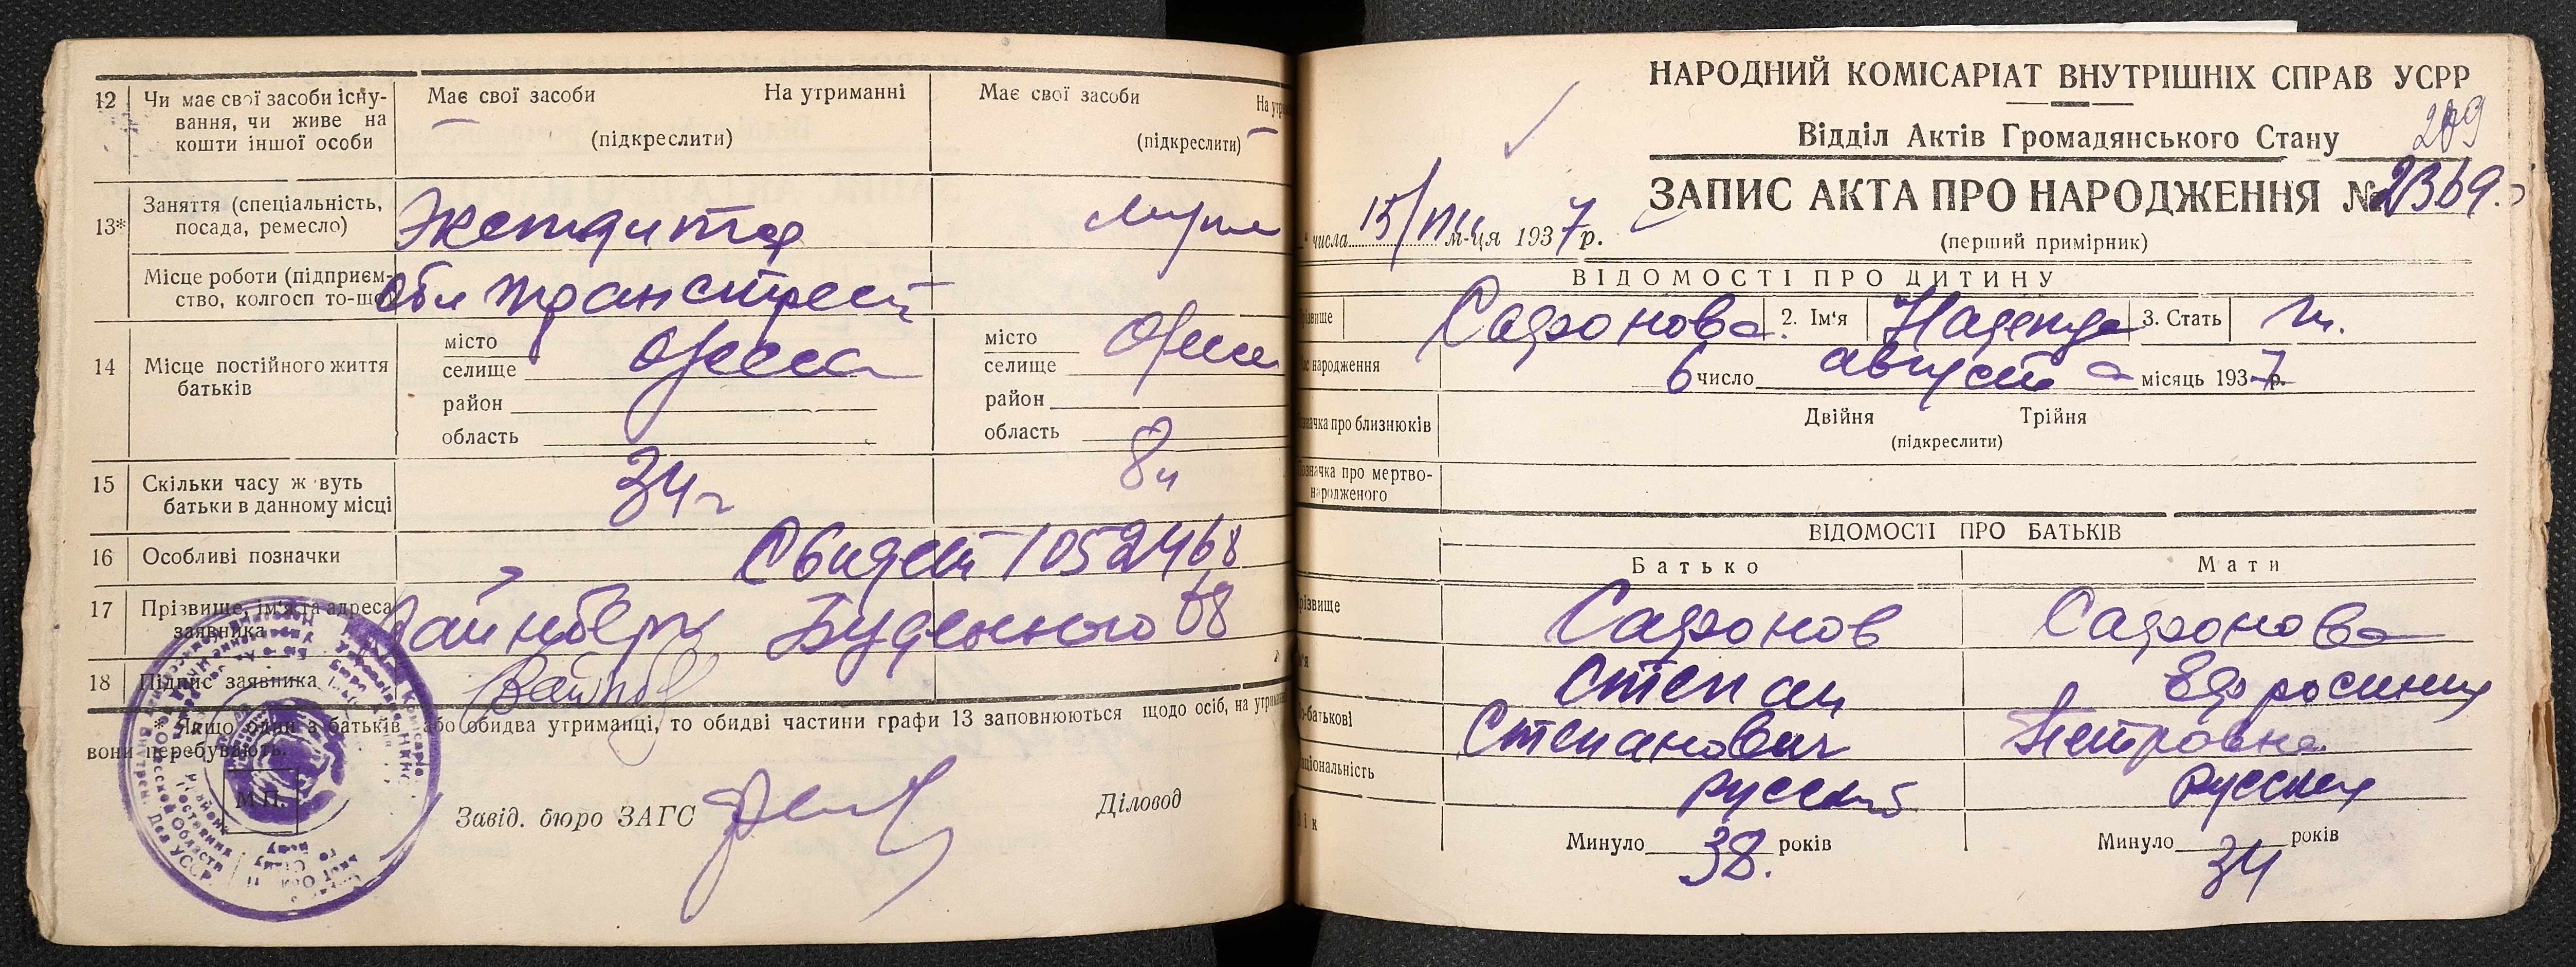 12 Чи має свої засоби існу-
вання, чи живе на
кошти іншої особи
Має свої засоби На утриманні
(підкреслити)
Має свої засоби
(підкреслити)
13* Заняття (спеціальність,
посада, ремесло)
Экспедитор
Місце роботи (підприєм-
ство, колгосп то-що)
Облтранстрест
14 Місце постійного життя
батьків
місто
селище Одесса
район
область
місто
селище Одесса
район
область
15 Скільки часу живуть
батьки в данному місці
34 г
8
16 Особливі позначки
Свидет 1052468
17 Прізвище, ім'я та адреса
заявника
Вайнберг Буденного 68
18 Підпис заявника
* Якщо один з батьків або обидва утриманці, то обидві частини графи 13 заповнюються щодо осіб, на
вони перебувають.
М.П.
Завід. бюро ЗАГС
Діловод
НАРОДНИЙ КОМІСАРІАТ ВНУТРІШНІХ СПРАВ УСРР
Відділ Актів Громадянського Стану
209
ЗАПИС АКТА ПРО НАРОДЖЕННЯ № 2369.
числа 15/VIII м-ця 1937 р.
(перший примірник)
ВІДОМОСТІ ПРО ДИТИНУ
Сафонова 2. Ім'я Надежда 3. Стать ж.
народження
6 число августа місяць 1937 р.
про близнюків
Двійня Трійня
(підкреслити)
про мертво-
народженого
ВІДОМОСТІ ПРО БАТЬКІВ
Батько Мати
Сафонов Сафонова
Степан Ефросиния
Степанович Петровна
русский русская
Минуло 38. років
Минуло 34 років